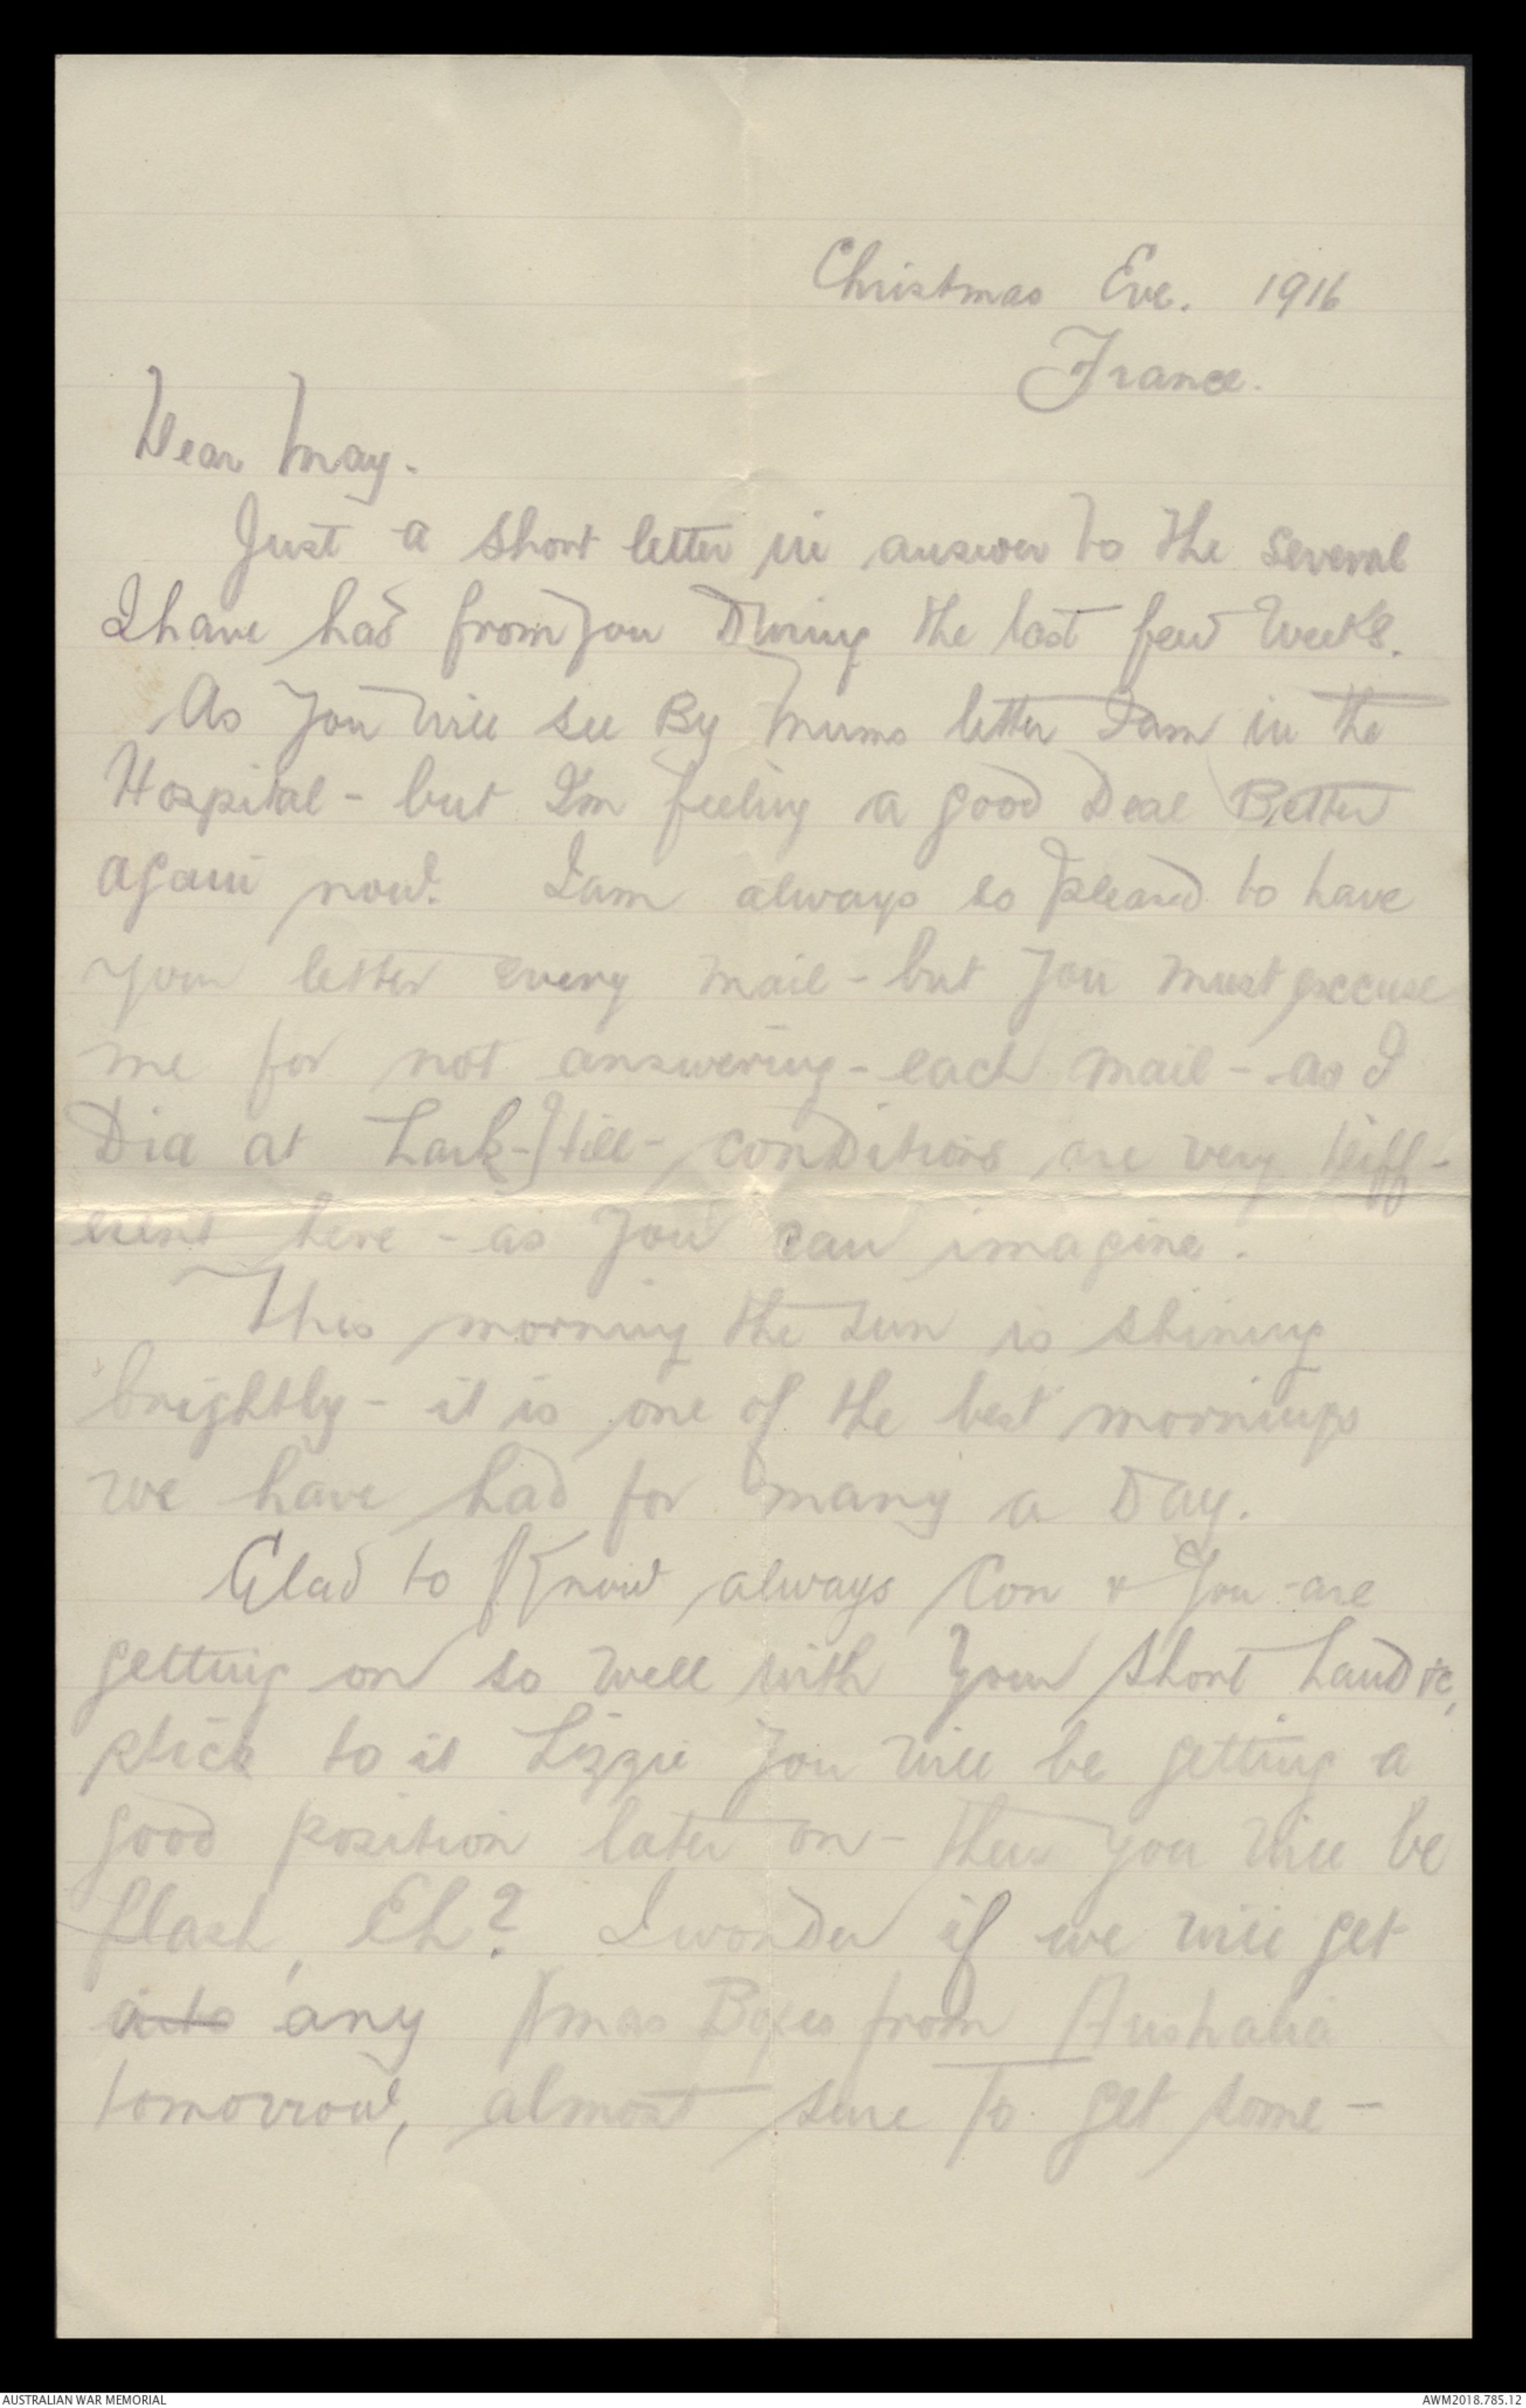 Christmas Eve. 1916
France.
Dear May.
Just a short letter in answer to the several
I have had from you During the last few weeks.
As you will see By Mums letter I am in the
Hospital - but I'm feeling a good Deal Better
again now. I am always so pleased to have
your letter every mail - but you must excuse
me for not answering - each mail - as I
Did at Lark-Hill - conditions are very diff-
erent here - as you can imagine.
This morning the sun is shining
brightly - it is one of the best mornings
we have had for many a Day.
Glad to Know always Con & You are
getting on so well with your short hand &c,
stick to it Lizzie you will be getting a
good position later on - then you will be
flash, Eh? I wonder if we will get
any Xmas Boxes from Australia
tomorrow, almost sure to get some -
AUSTRALIAN WAR MEMORIAL
AWM2018.785.12